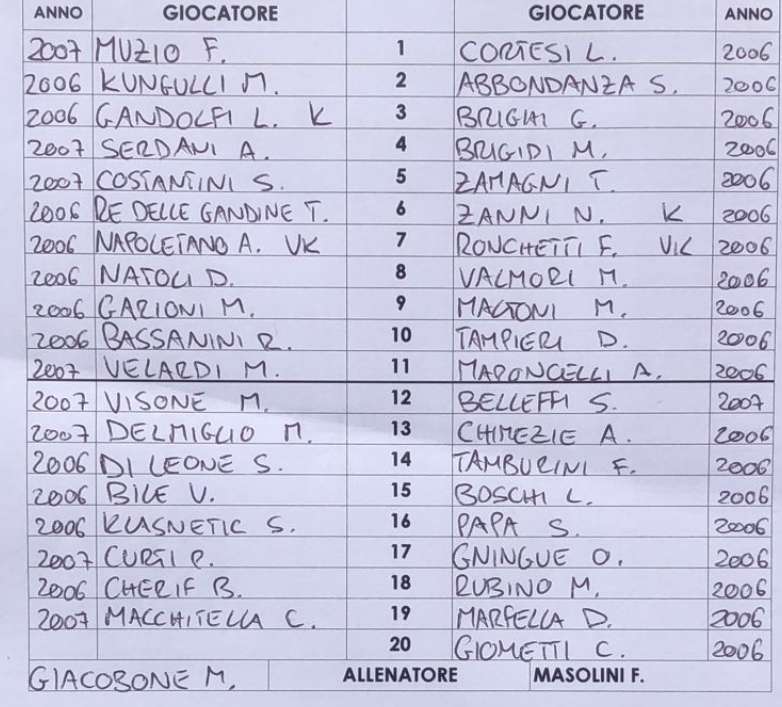 ANNO GIOCATORE GIOCATORE ANNO
2007 MUZIO F. 1 CORTESI L. 2006
2006 KUNGULLI M. 2 ABBONDANZA S. 2006
2006 GANDOLFI L. K 3 BRIGHI G. 2006
2007 SERDANI A. 4 BRIGIDI M. 2006
2007 COSTANTINI S. 5 ZAMAGNI T. 2006
2006 RE DELLE GANDINE T. 6 ZANNI N. K 2006
2006 NAPOLETANO A. VK 7 RONCHETTI F. VK 2006
2006 NATOLI D. 8 VALMORI M. 2006
2006 GARIONI M. 9 MALTONI M. 2006
2006 BASSANINI R. 10 TAMPIERI D. 2006
2007 VELARDI M. 11 MARONCELLI A. 2006
2007 VISONE M. 12 BELLEFFI S. 2007
2007 DELMIGLIO M. 13 CHIMEZIE A. 2006
2006 DI LEONE S. 14 TAMBURINI F. 2006
2006 BILE V. 15 BOSCHI L. 2006
2006 KLASNETIC S. 16 PAPA S. 2006
2007 CURTI R. 17 GNINGUE O. 2006
2006 CHERIF B. 18 RUBINO M. 2006
2007 MACCHITELLA C. 19 MARFELLA D. 2006
20 GIOMETTI C. 2006
GIACOBONE M. ALLENATORE MASOLINI F.